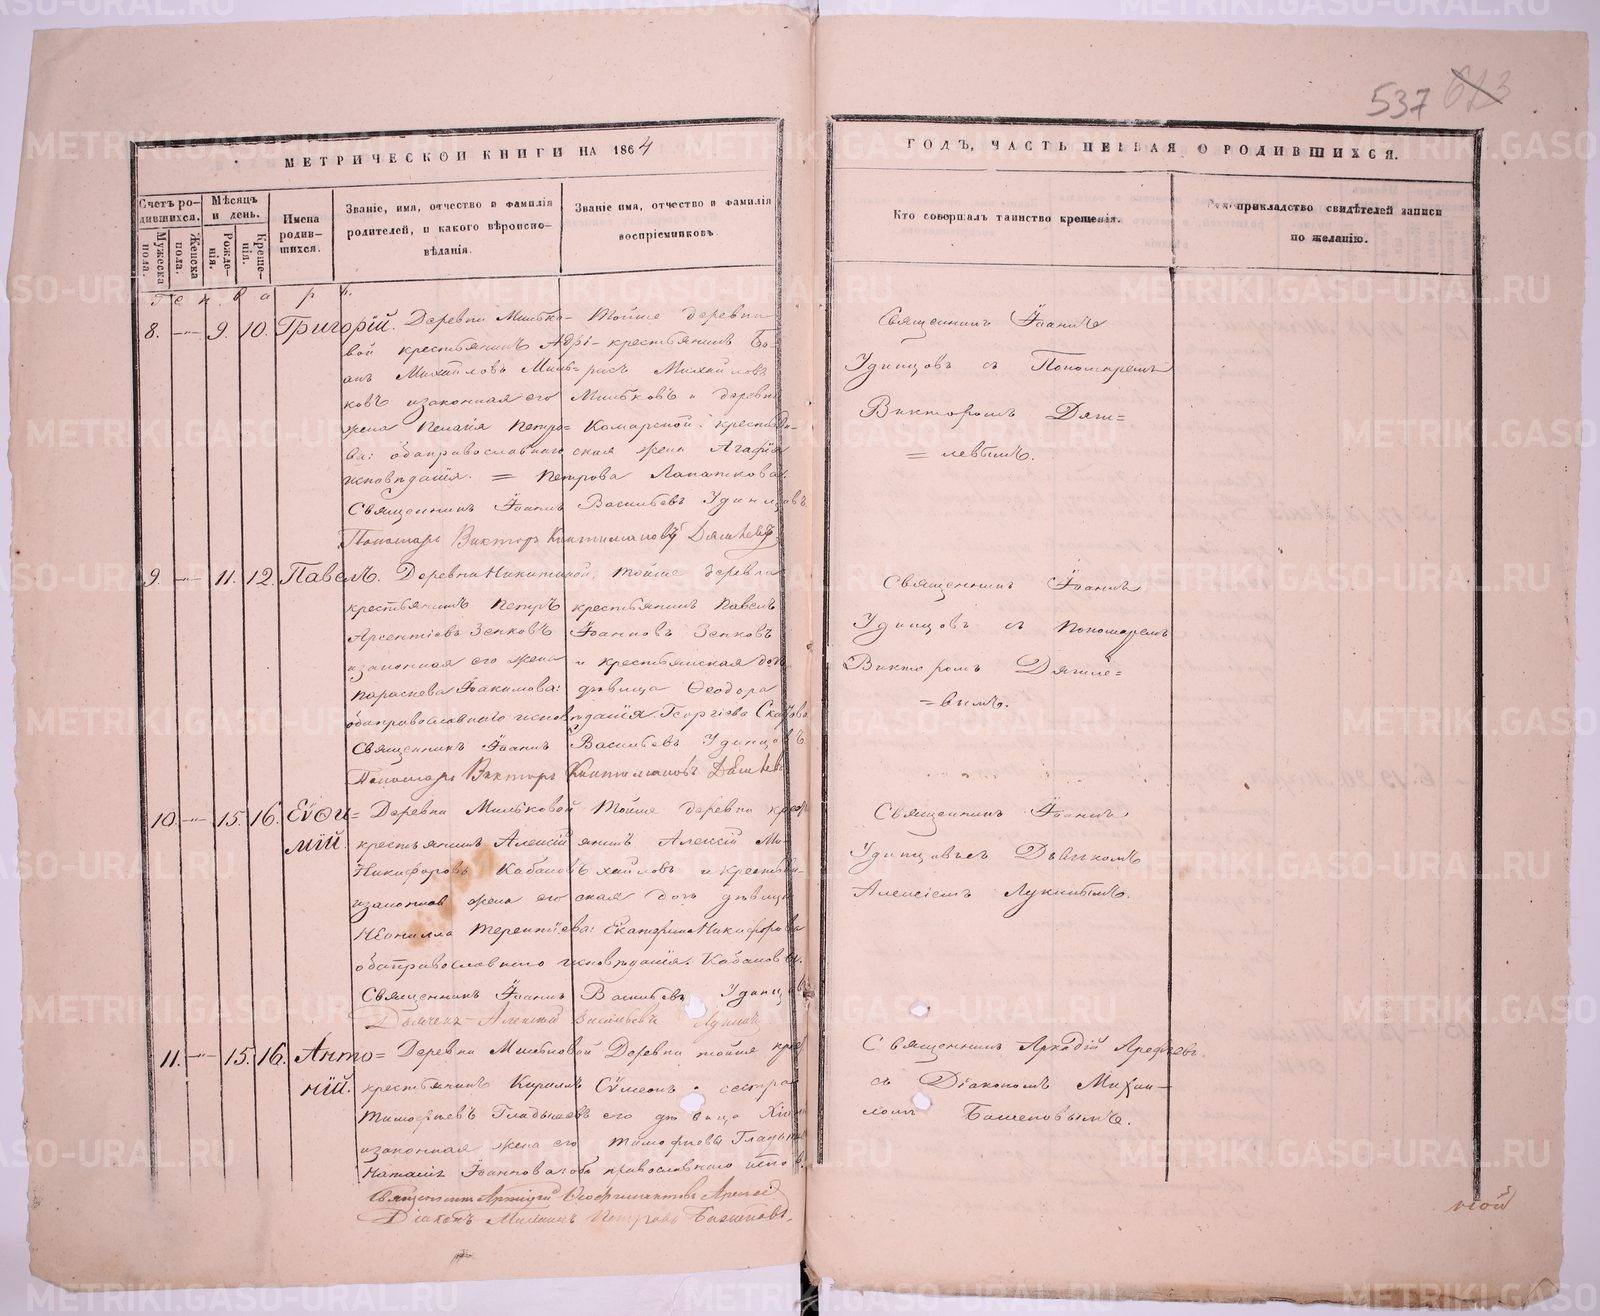 537 613
МЕТРИЧЕСКОЙ КНИГИ НА 1864
ГОДЪ, ЧАСТЬ ПЕРВАЯ, О РОДИВШИХСЯ.
Счетъ родившихся.
Мужеска пола.
Женска пола.
Мѣсяцъ и день.
Рожденія.
Крещенія.
Имена родившихся.
Званіе, имя, отчество и фамилія
родителей, и какого вѣроиспо-
вѣданія.
Званіе имя, отчество и фамилія
воспріемниковъ.
Кто совершалъ таинство крещенія.
Рукоприкладство свидѣтелей записи
по желанію.
Генварь.
8. 9. 10. Григорій.
Деревни Милько-
вой крестьянинъ Адрі-
анъ Михайловъ Миль-
ковъ изаконная его
жена Пелагія Петро=
ва: обаправославнаго
исповѣданія. =
Тойже деревни
крестьянинъ Бо-
рисъ Михайловъ
Мильковъ и деревни
Комарской крестьян-
ская жена Агафія
Петрова Лапаткова.
Священникъ Іоаннъ Васильевъ Удинцовъ
Пономарь Викторъ Дягилевъ
Священникъ Іоаннъ
Удинцовъ съ Пономаремъ
Викторомъ Дяги=
=левымъ.
9. 11. 12. Павелъ.
Деревни Никитиной,
крестьянинъ Петръ
Арсентіевъ Зенковъ
изаконная его жена
Параскева Іоакимова:
обаправославнаго исповѣданія.
Тойже деревни
крестьянинъ Павелъ
Іоанновъ Зенковъ
и крестьянская дочь
дѣвица Ѳеодора
Георгіева
Священникъ Іоаннъ Васильевъ Удинцовъ
Пономарь Викторъ Дягилевъ
Священникъ Іоаннъ
Удинцовъ съ Пономаремъ
Викторомъ Дягиле=
=вымъ.
10. 15. 16. Евѳи=
мій.
Деревни Мильковой
крестьянинъ Алексій
Никифоровъ Кабановъ
изаконная жена его
Неонилла Терентіева:
обаправославнаго исповѣданія.
Тойже деревни крест
янинъ Алексій Ми-
хайловъ и крестьян-
ская дочь дѣвица
Екатерина Никифорова
Кабановы.
Священникъ Іоаннъ Васильевъ Удинцовъ
Дьячекъ Алексій Васильевъ Лукинъ
Священникъ Іоаннъ
Удинцовъ съ Дьячкомъ
Алексіемъ Лукинымъ.
11. 15. 16. Анто=
ній.
Деревни Мильковой
крестьянинъ Кириллъ
Тимофіевъ Гладышевъ
изаконная жена его
Наталія Іоаннова: оба православнаго испов.
Деревни тойже кре
Сумеонъ и сестра
его дѣвица
Тимофіевы
Священникъ Аркадій
Діаконъ Михаилъ Петровъ
Священникъ Аркадій Арефьевъ
съ Діакономъ Михаи-
ломъ